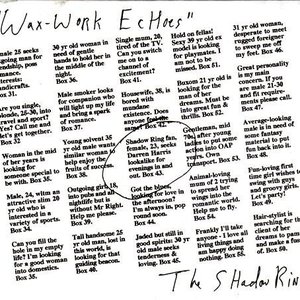 "Wax-Work Echoes"
male 25 seeks
going man for
Box 31.
Are you single,
loaded, 25-30, into
travel and sport?
Yes? Call me and
let's get together.
Box 32
Woman in the mid
of her years is
looking for
someone special to
be with. Box 33.
Male, 24, witm an
attractive slim 20
yr old who is
interested in a
variety of sports.
Box 34.
Can you fill the
hole in my empty
life? I'm looking
for a good woman
into domestics.
Box 35.
30 yr old woman in
need of gentle
hands to hold her in
the middle of the
night.
Box 36.
Male smoker looks
for companion who
will light up my life
and bring a spark
of romance.
Box 37.
Young solvent 35
yr old male wants
similar woman to
help enjoy the
fruits of success.
Box 38.
Outgoing girl, 18,
into pubs and all
nightlife but is
without Mr Right.
Help me please.
Box 39.
Tall handsome 25
yr old man, lost in
this world, is
looking for that
guiding beacon.
Box 40.
Single mum, 20,
tired of the TV.
Can you switch
me on to a
channel of
excitement?
Box 41.
Housewife, 38, is
bored with
mundane
existence. Does
anyone feel the
same? Box. 42.
Shadow Ring fan,
female, 23, seeks
Darren Harris
lookalike for
evenings in and
out. Box 43.
Got the blues,
looking for love in
the afternoon?
I'm always in, pop
round soon.
Box 44.
Jaded but still in
good spirits 30 yr
old male seeks
tenderness &
loving. Box 45.
Hold on fellas!
Sexy 39 yr old ex
model is looking
for playmates. I
am not to be
missed. Box 51.
Buxom 21 yr old is
looking for the
man of her
dreams. Must be
into great fun &
thrills. Box 52.
Gentleman, mid
50s, after young
ladies to put some
action into OAP
years. Own
transport. Box 53.
Animal-loving
mum of 2 trying
to spread her
wings into the
romantic world.
Help me to fly.
Box 54
Frankly I'll take
anyone - I love all
living things and
am happy doing
nothing. Box 56.
31 yr old woman,
desperate to meet
rugged foreigner
to sweep me off
my feet. Box 46.
Great personality
is my main
concern. If you
are male 21-38
and fit require-
ments please call.
Box 47.
Average-looking
male is in need of
some feminine
material to put the
fun back into it.
Box 48.
Fun-loving first
time girl who
wishes to swing
with guys and
groovy girls.
Let's party!
Box 49
Hair-stylist is
searching for the
client of her
dreams to comb
and make a fuss
of. Box 50.
The Shadow Rin